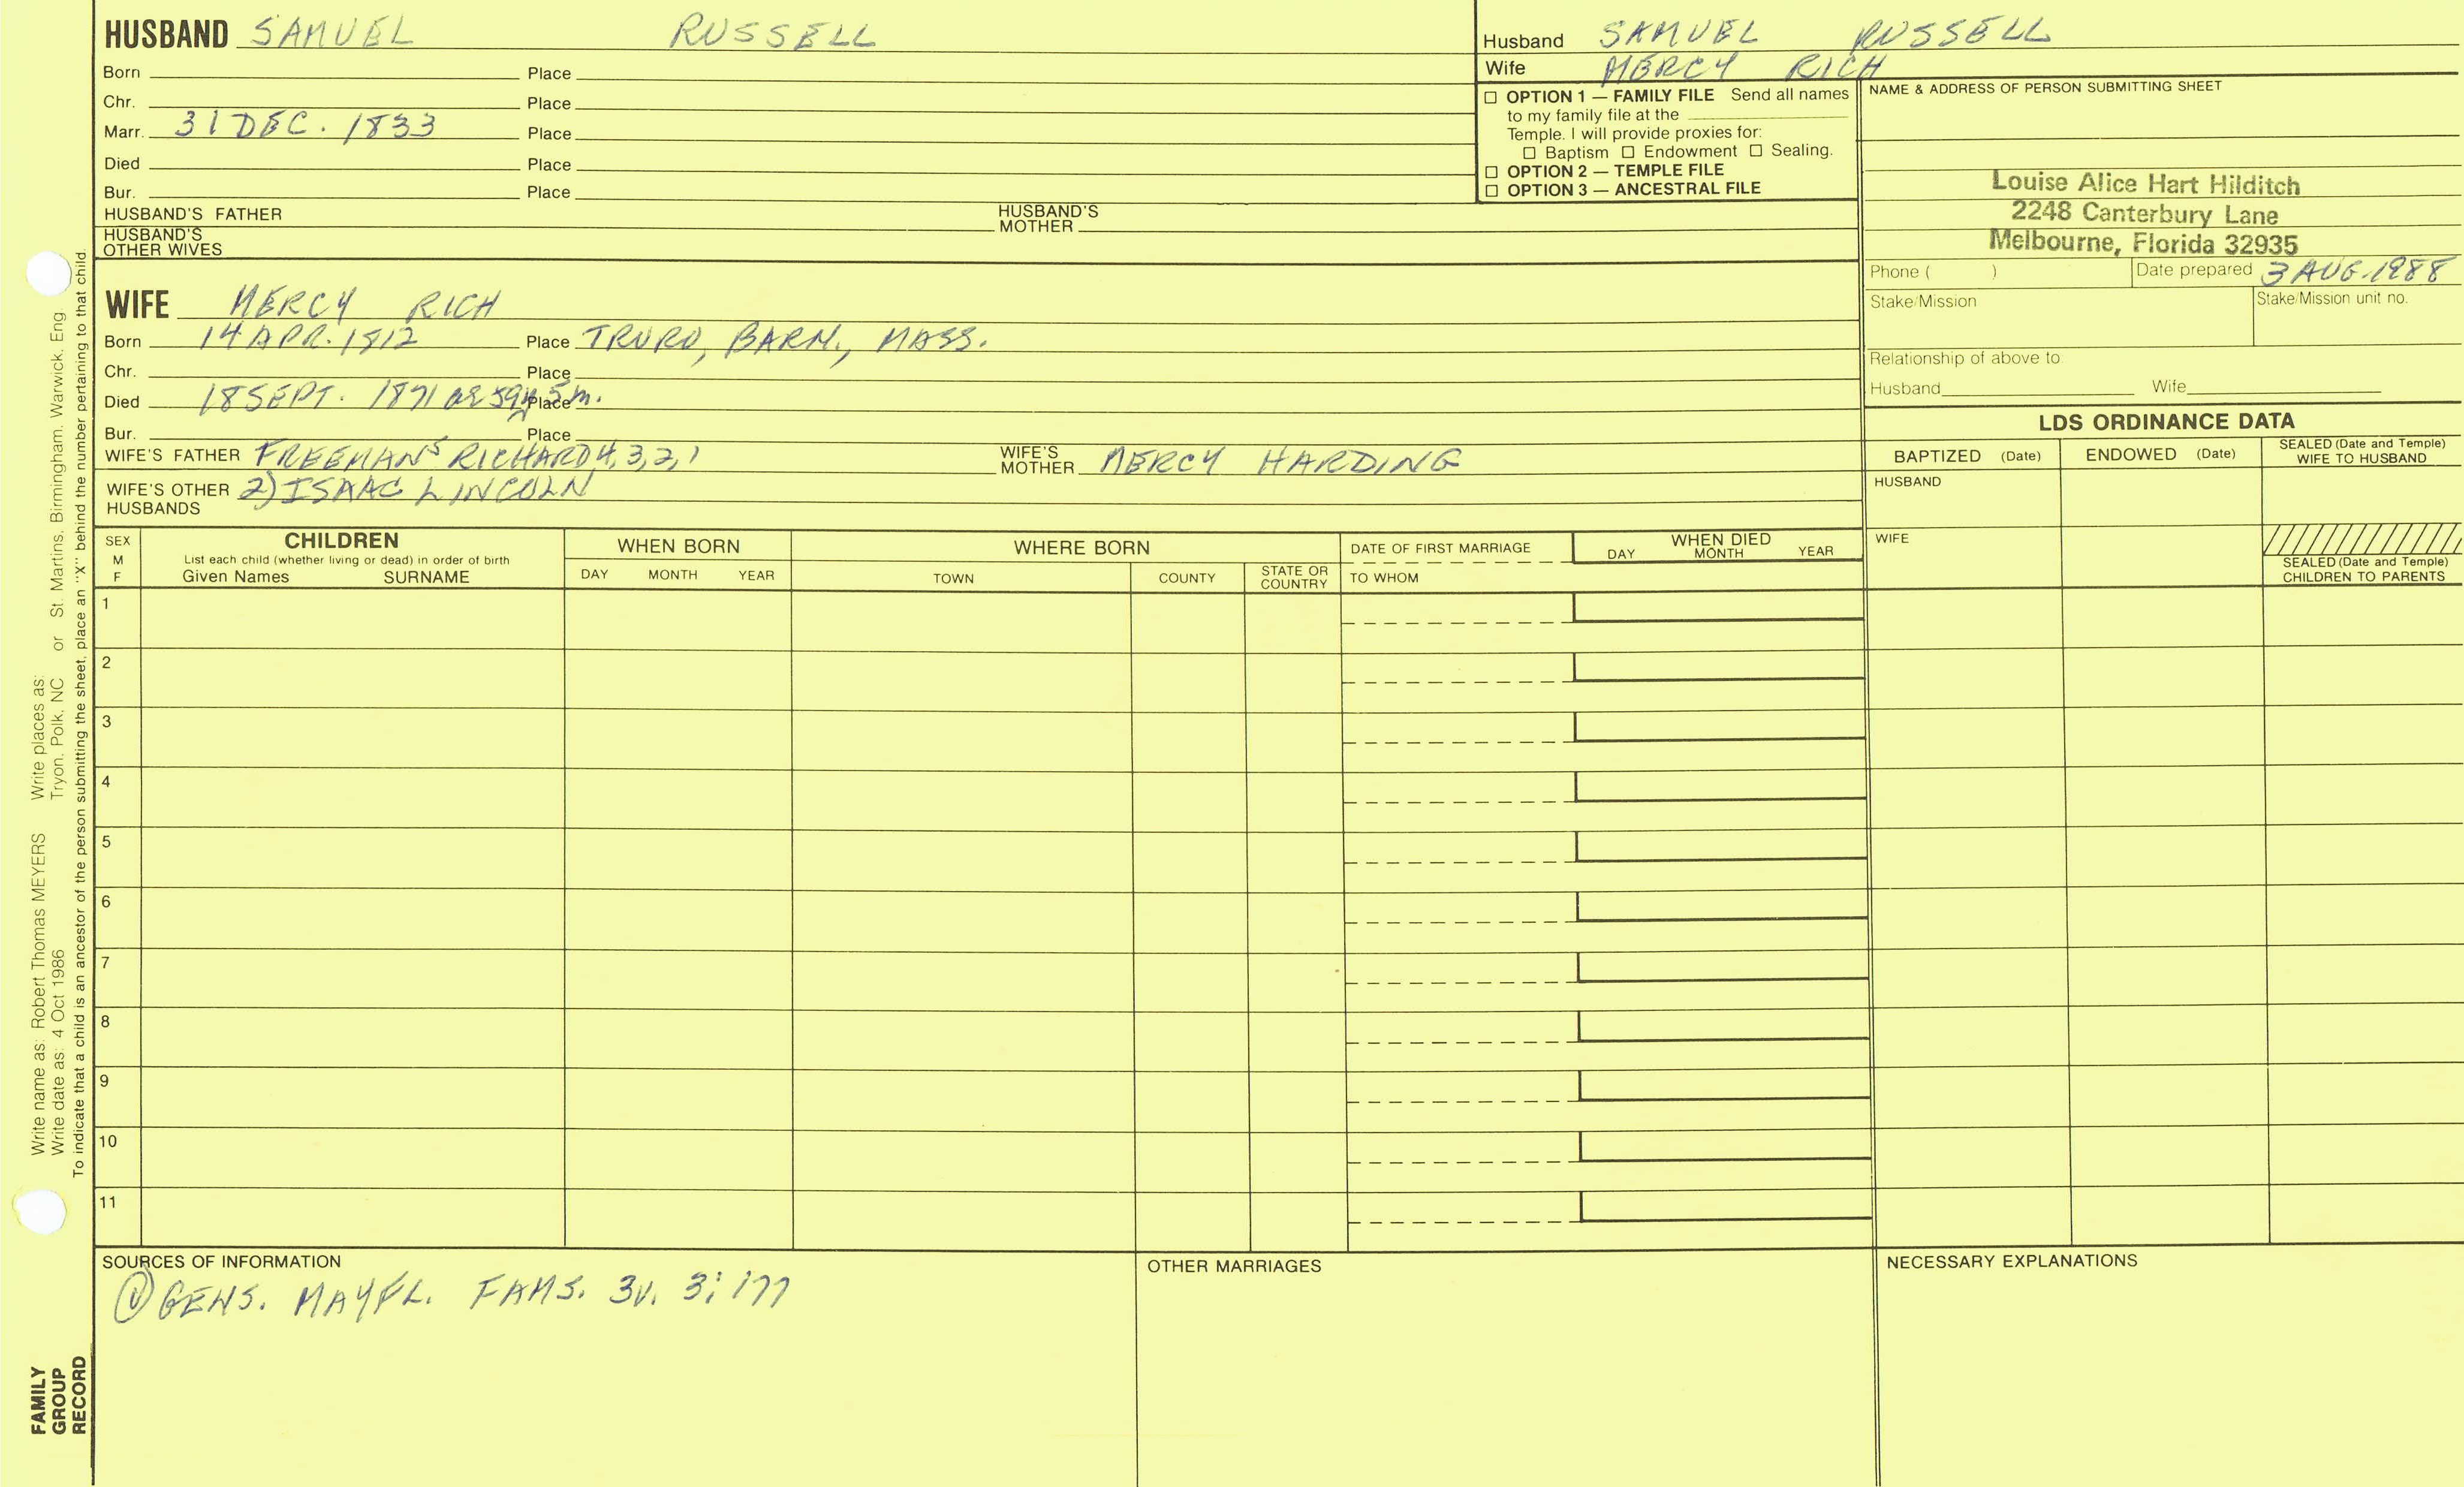 HUSBAND SAMUEL RUSSELL
Born Place
Chr. Place
Marr. 31 DEC. 1833 Place
Died Place
Bur. Place
HUSBAND'S FATHER HUSBAND'S MOTHER
HUSBAND'S OTHER WIVES
WIFE MERCY RICH
Born 14 APR. 1812 Place TRURO, BARN., MASS.
Chr. Place
Died 18 SEPT. 1871 ae 59y 5m. Place
Bur. Place
WIFE'S FATHER FREEMAN5 RICHARD 4, 3, 2, 1 WIFE'S MOTHER MERCY HARDING
WIFE'S OTHER HUSBANDS 2) ISAAC LINCOLN
Husband SAMUEL RUSSELL
Wife MERCY RICH
☐ OPTION 1 — FAMILY FILE Send all names
to my family file at the
Temple. I will provide proxies for:
☐ Baptism ☐ Endowment ☐ Sealing.
☐ OPTION 2 — TEMPLE FILE
☐ OPTION 3 — ANCESTRAL FILE
NAME & ADDRESS OF PERSON SUBMITTING SHEET
Louise Alice Hart Hilditch
2248 Canterbury Lane
Melbourne, Florida 32935
Phone ( ) Date prepared 3 AUG. 1988
Stake/Mission Stake/Mission unit no.
Relationship of above to
Husband Wife
LDS ORDINANCE DATA
BAPTIZED (Date) ENDOWED (Date) SEALED (Date and Temple) WIFE TO HUSBAND
HUSBAND
WIFE
SEALED (Date and Temple) CHILDREN TO PARENTS
SEX M F
CHILDREN
List each child (whether living or dead) in order of birth
Given Names SURNAME
WHEN BORN
DAY MONTH YEAR
WHERE BORN
TOWN COUNTY STATE OR COUNTRY
DATE OF FIRST MARRIAGE
TO WHOM
WHEN DIED
DAY MONTH YEAR
1
2
3
4
5
6
7
8
9
10
11
SOURCES OF INFORMATION
① GENS. MAYFL. FAMS. 3V. 3:177
OTHER MARRIAGES
NECESSARY EXPLANATIONS
Write name as: Robert Thomas MEYERS Write places as:
Write date as: 4 Oct 1986 Tryon, Polk, NC or St. Martins, Birmingham, Warwick, Eng
To indicate that a child is an ancestor of the person submitting the sheet, place an "X" behind the number pertaining to that child.
FAMILY
GROUP
RECORD